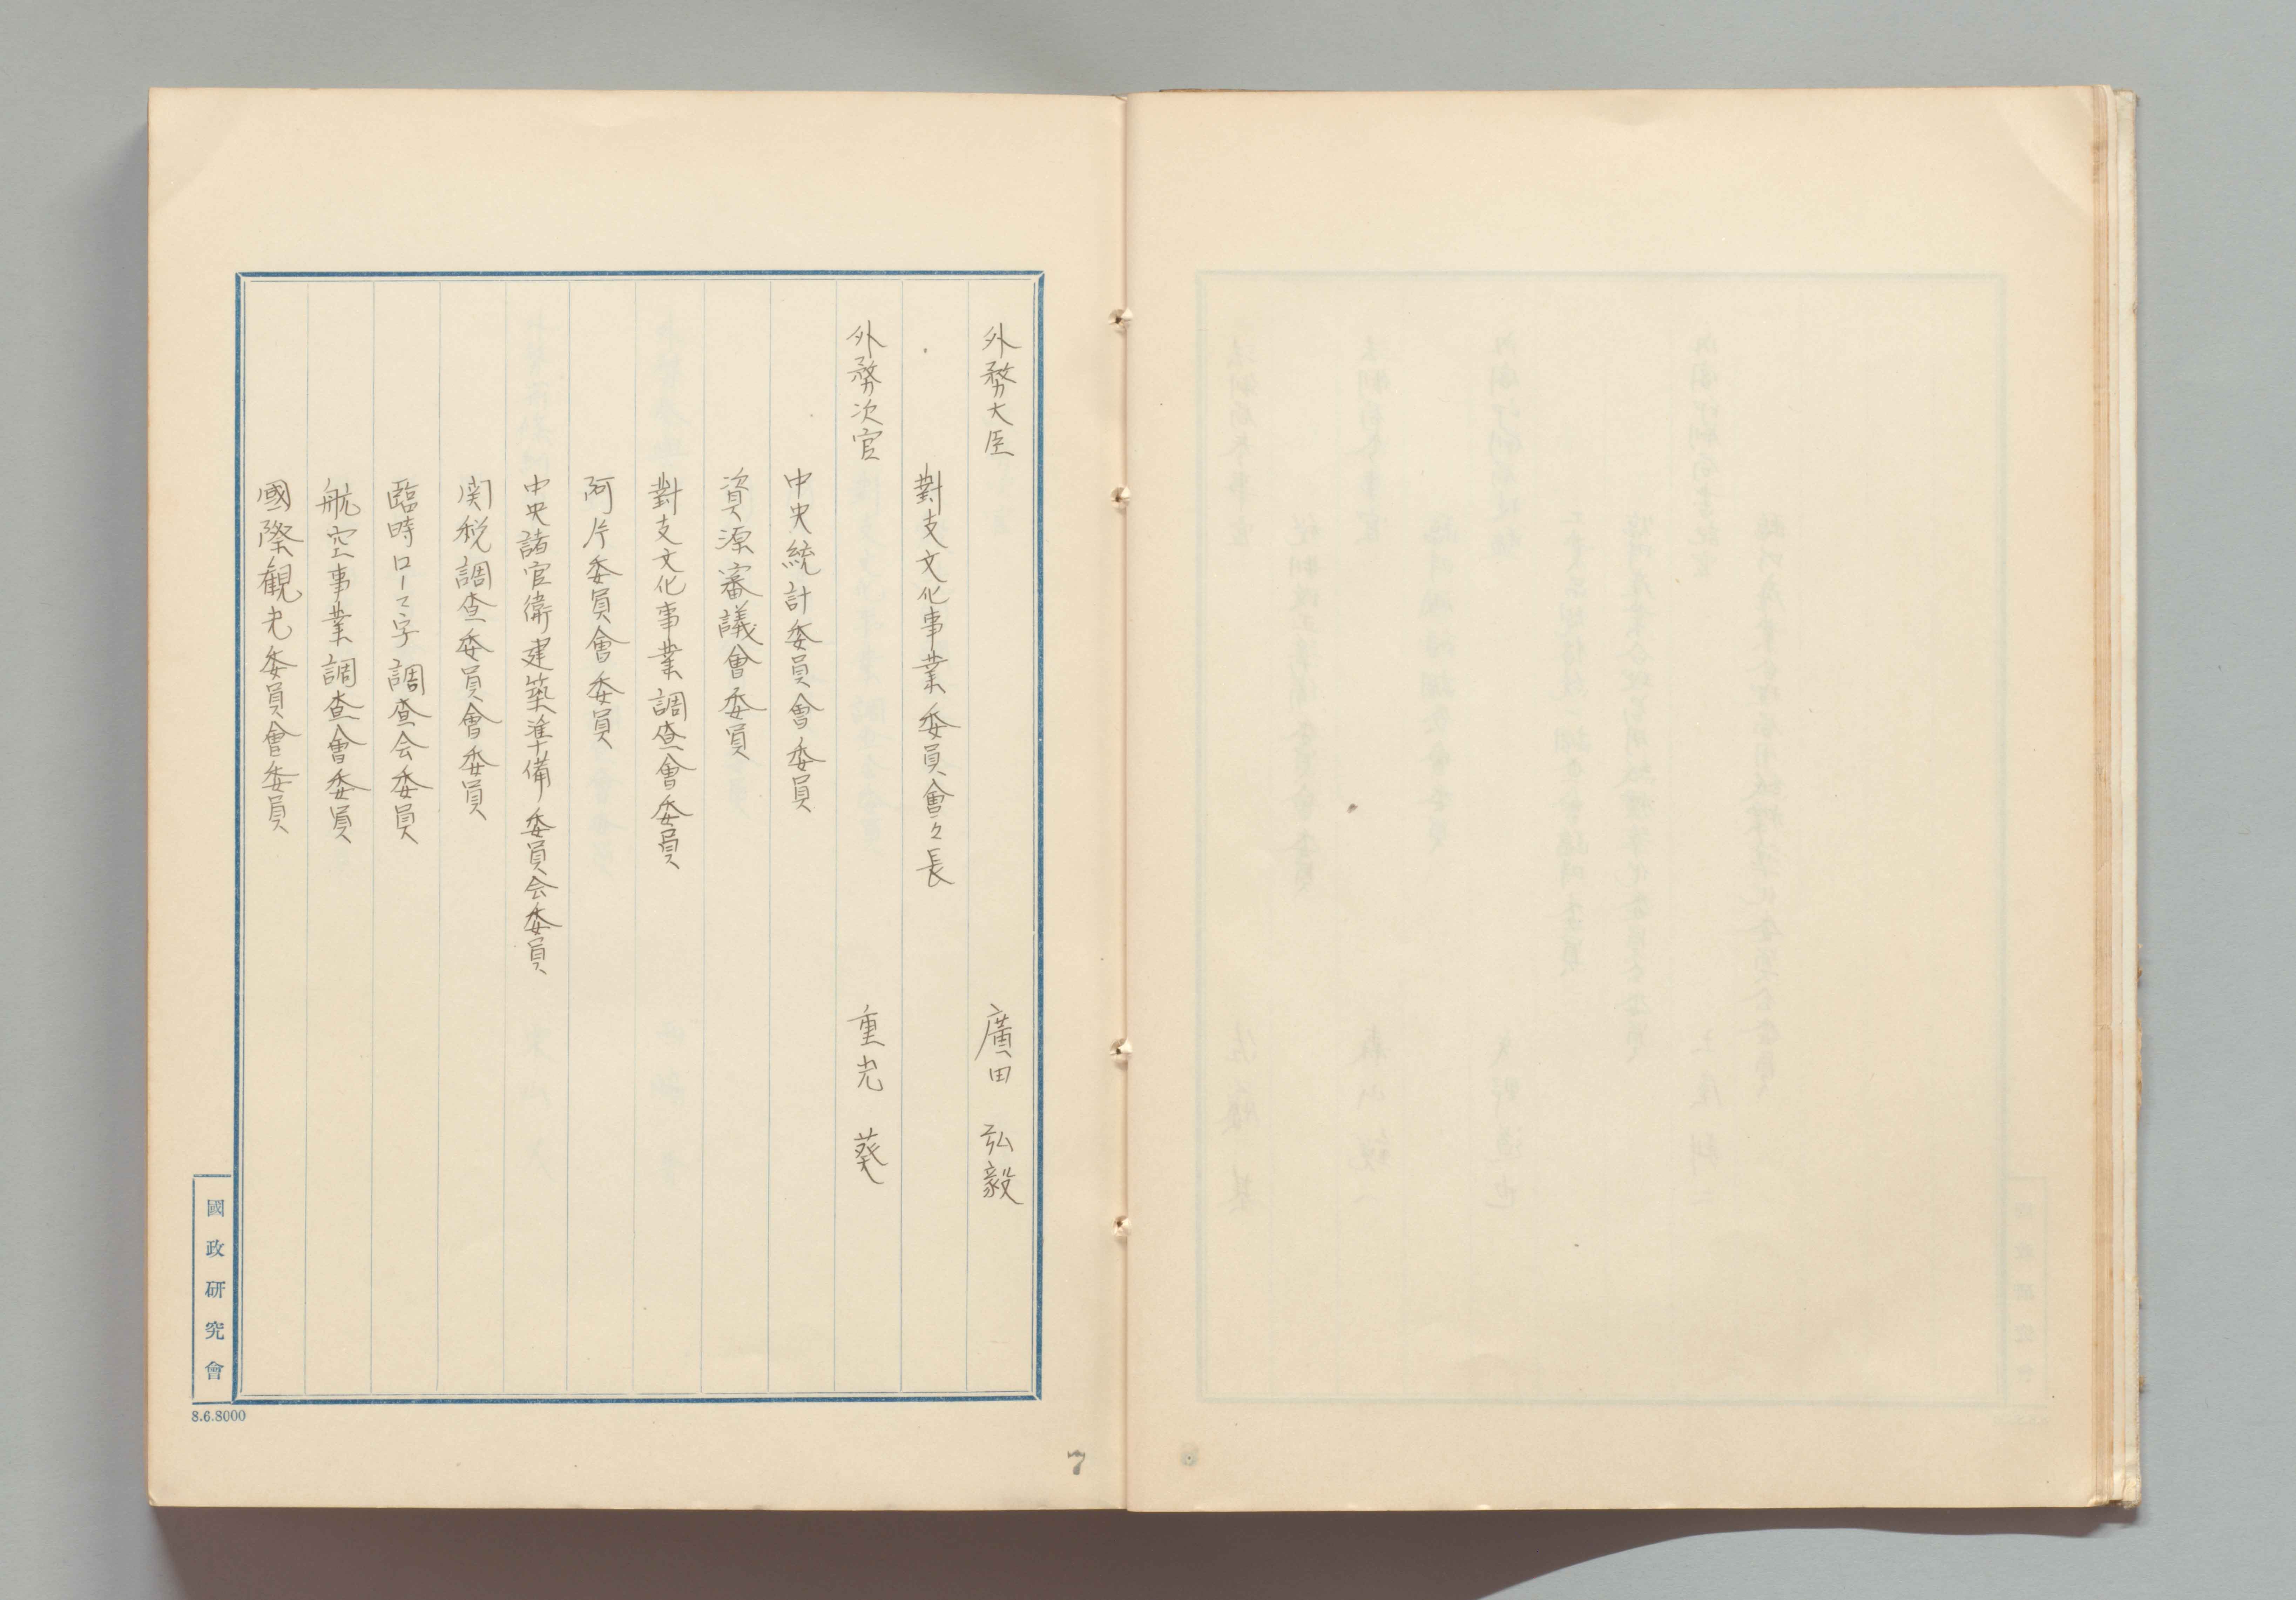 外務大臣　廣田　弘毅
對支文化事業委員會々長
外務次官　重光　葵
中央統計委員會委員
資源審議會委員
對支文化事業調査會委員
阿片委員會委員
中央諸官衙建築準備委員会委員
関税調査委員會委員
臨時ローマ字調査会委員
航空事業調査會委員
國際観光委員會委員
國政研究會
8.6.8000
7